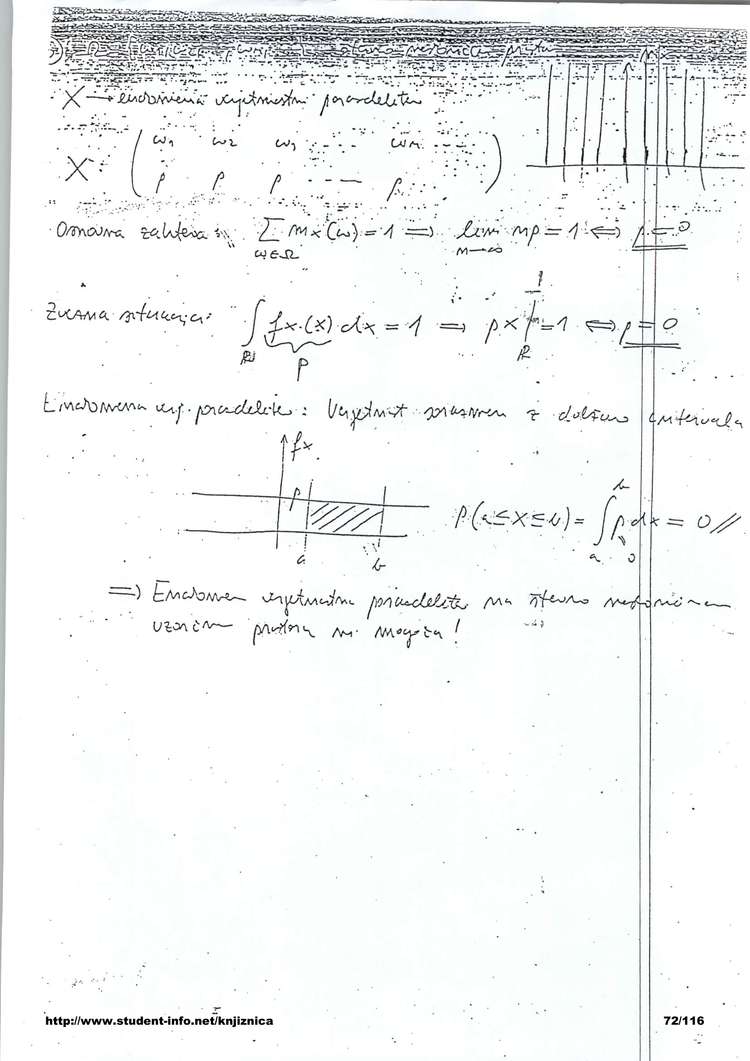 X → enakomerna verjetnostna porazdelitev
X: ( ω1 ω2 ω3 ..... ωn .....
p p p ---- p .. )
mx
Osnovna zahteva: ∑ mx(ω) = 1 ⇒ lim np = 1 ⇔ p = 0
ω∈Ω n→∞
Zvezna situacija: ∫ fx(x) dx = 1 ⇒ p x | = 1 ⇔ p = 0
R p R
Enakomerna verj. porazdelitev: Verjetnost z dolžino intervala
fx
p
a b
P(a≤X≤b) = ∫ p dx = 0 //
a b 0
⇒ Enakomerna verjetnostna porazdelitev na števno neskončnem
vzorčnem prostoru ni mogoča!
http://www.student-info.net/knjiznica 72/116